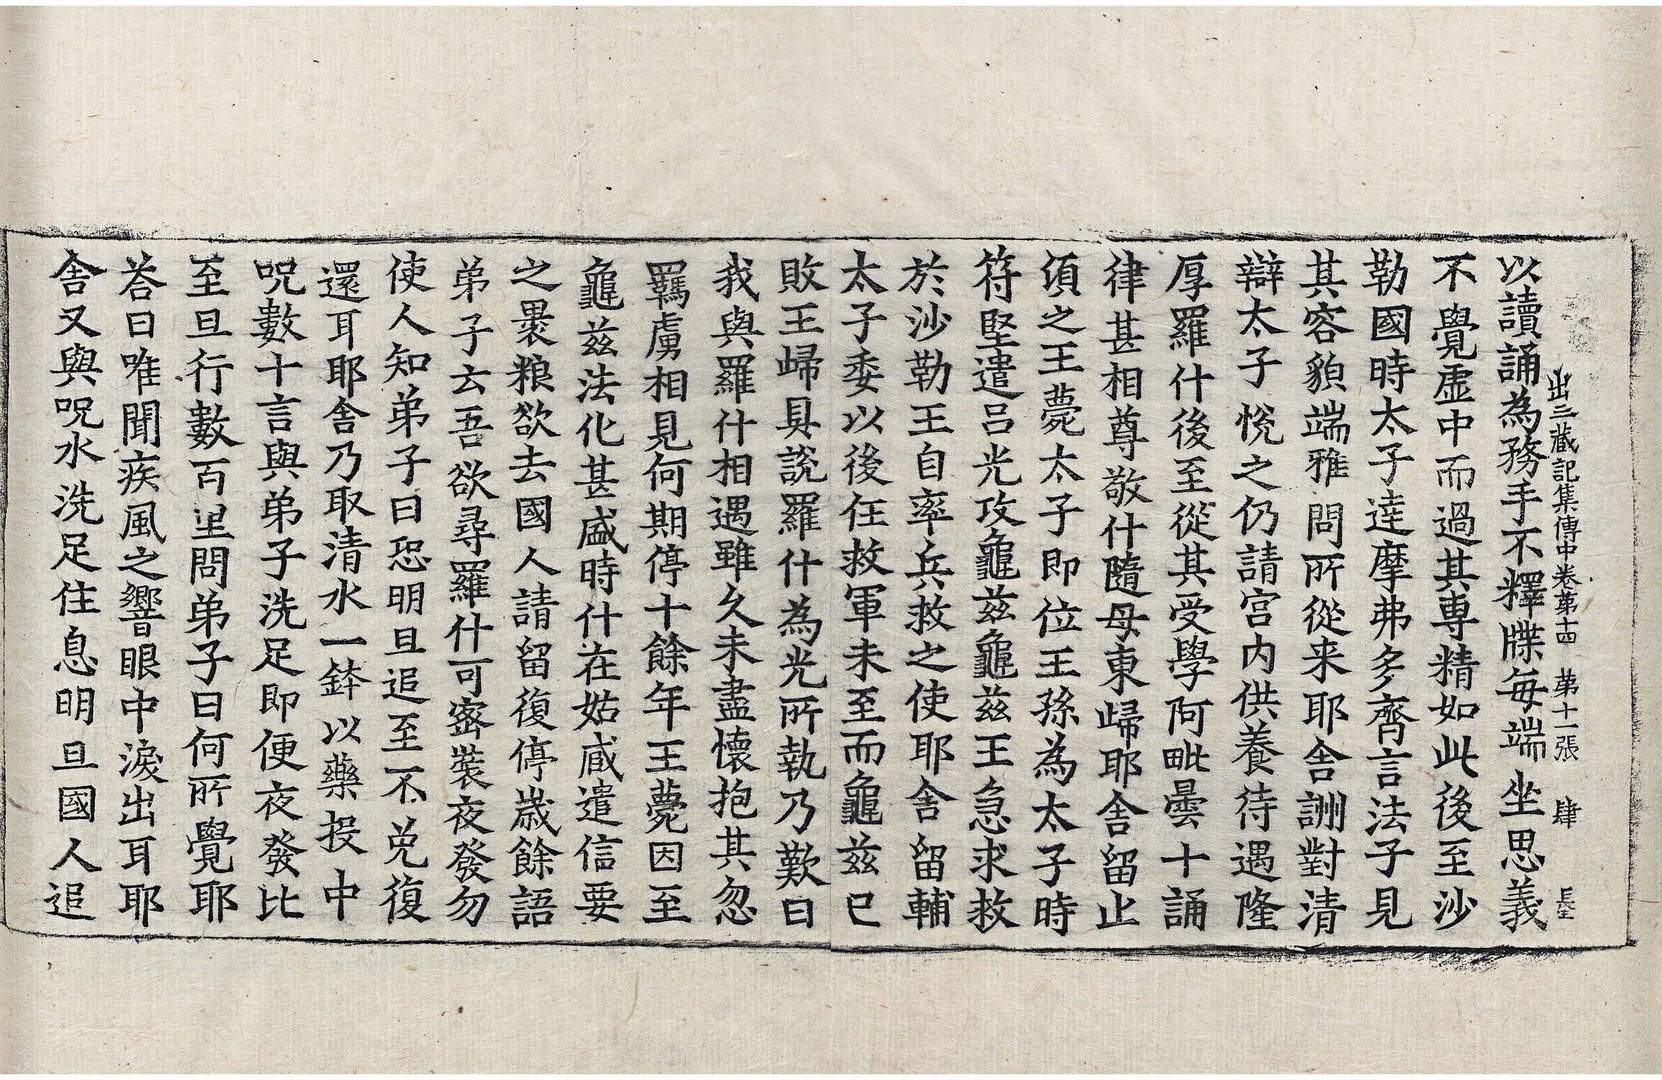 出三藏記集傳中卷第十四 第十一張 肆
以讀誦為務手不釋牒每端坐思義
不覺虛中而過其專精如此後至沙
勒國時太子達摩弗多齊言法子見
其容貌端雅問所從来耶舍詶對清
辯太子悅之仍請宮内供養待遇隆
厚羅什後至從其受學阿毗曇十誦
律甚相尊敬什隨母東歸耶舍留止
須之王薨太子即位王孫為太子時
符堅遣吕光攻龜兹龜兹王急求救
於沙勒王自率兵救之使耶舍留輔
太子委以後任救軍未至而龜兹已
敗王歸具說羅什為光所執乃歎曰
我與羅什相遇雖久未盡懷抱其忽
羈虜相見何期停十餘年王薨因至
龜兹法化甚盛時什在姑臧遣信要
之裹粮欲去國人請留復停歲餘語
弟子云吾欲尋羅什可密裝夜發勿
使人知弟子曰恐明旦追至不免復
還耳耶舍乃取清水一鉢以藥投中
呪數十言與弟子洗足即便夜發比
至旦行數百里問弟子曰何所覺耶
荅曰唯聞疾風之響眼中淚出耳耶
舍又與呪水洗足住息明旦國人追